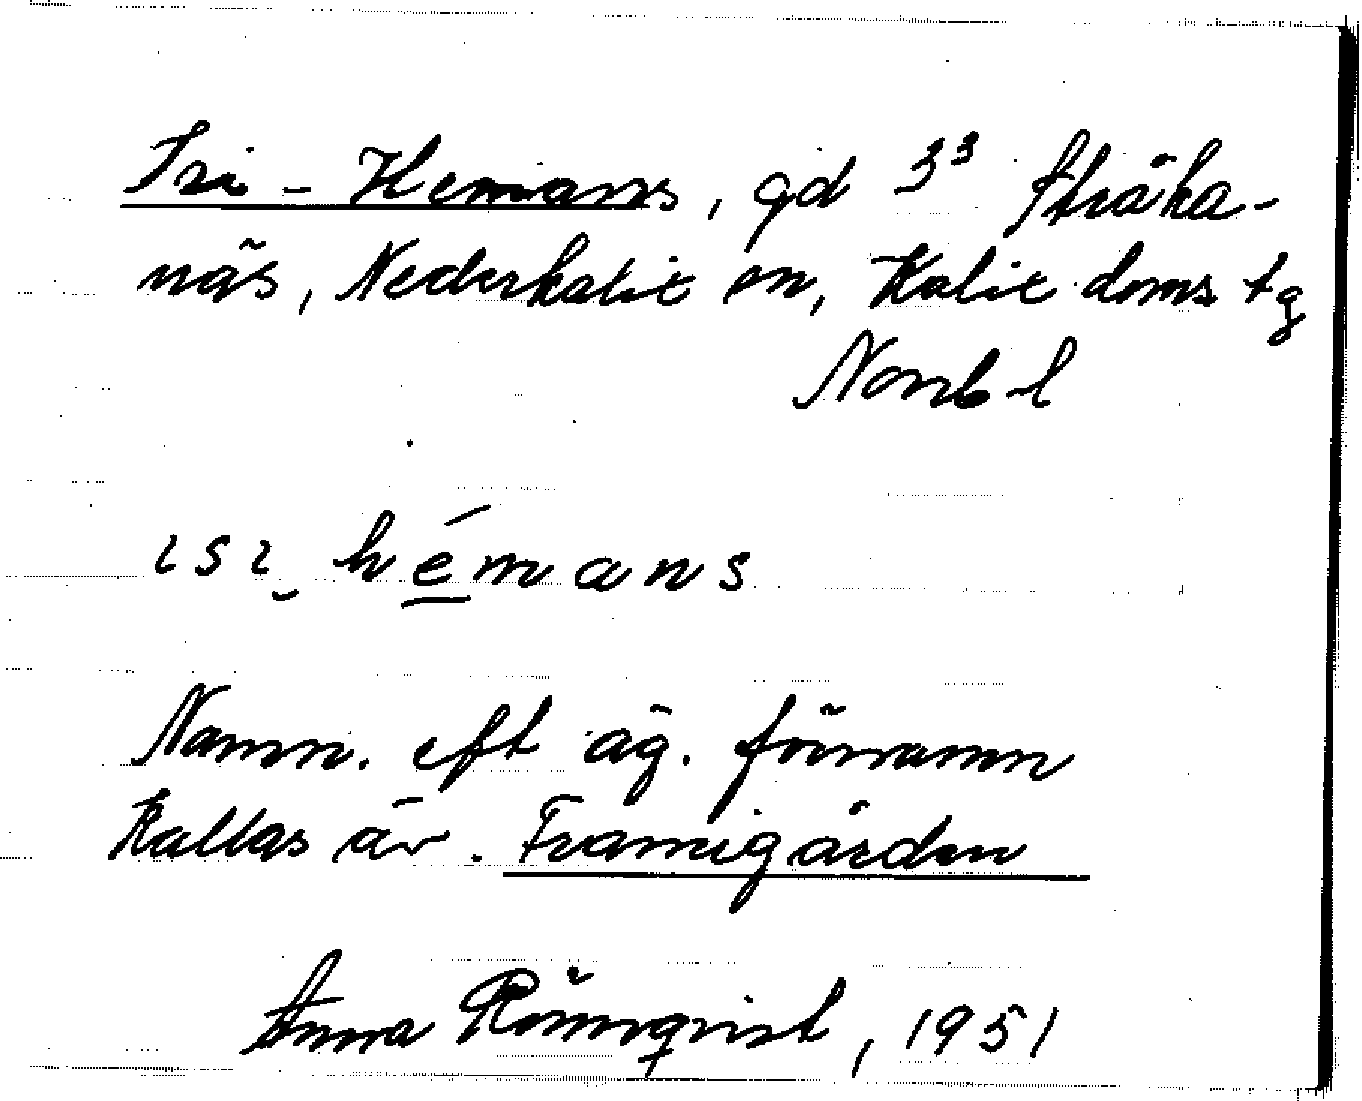 Isi-Hemans, gd 3³ Stråka-
näs, Nederkalix sn, Kalix doms tg
Norrb l
ɩsɩ̯ hémans
Namn. eft äg. förnamn
Kallas äv. Framigården
Anna Rönnqvist, 1951